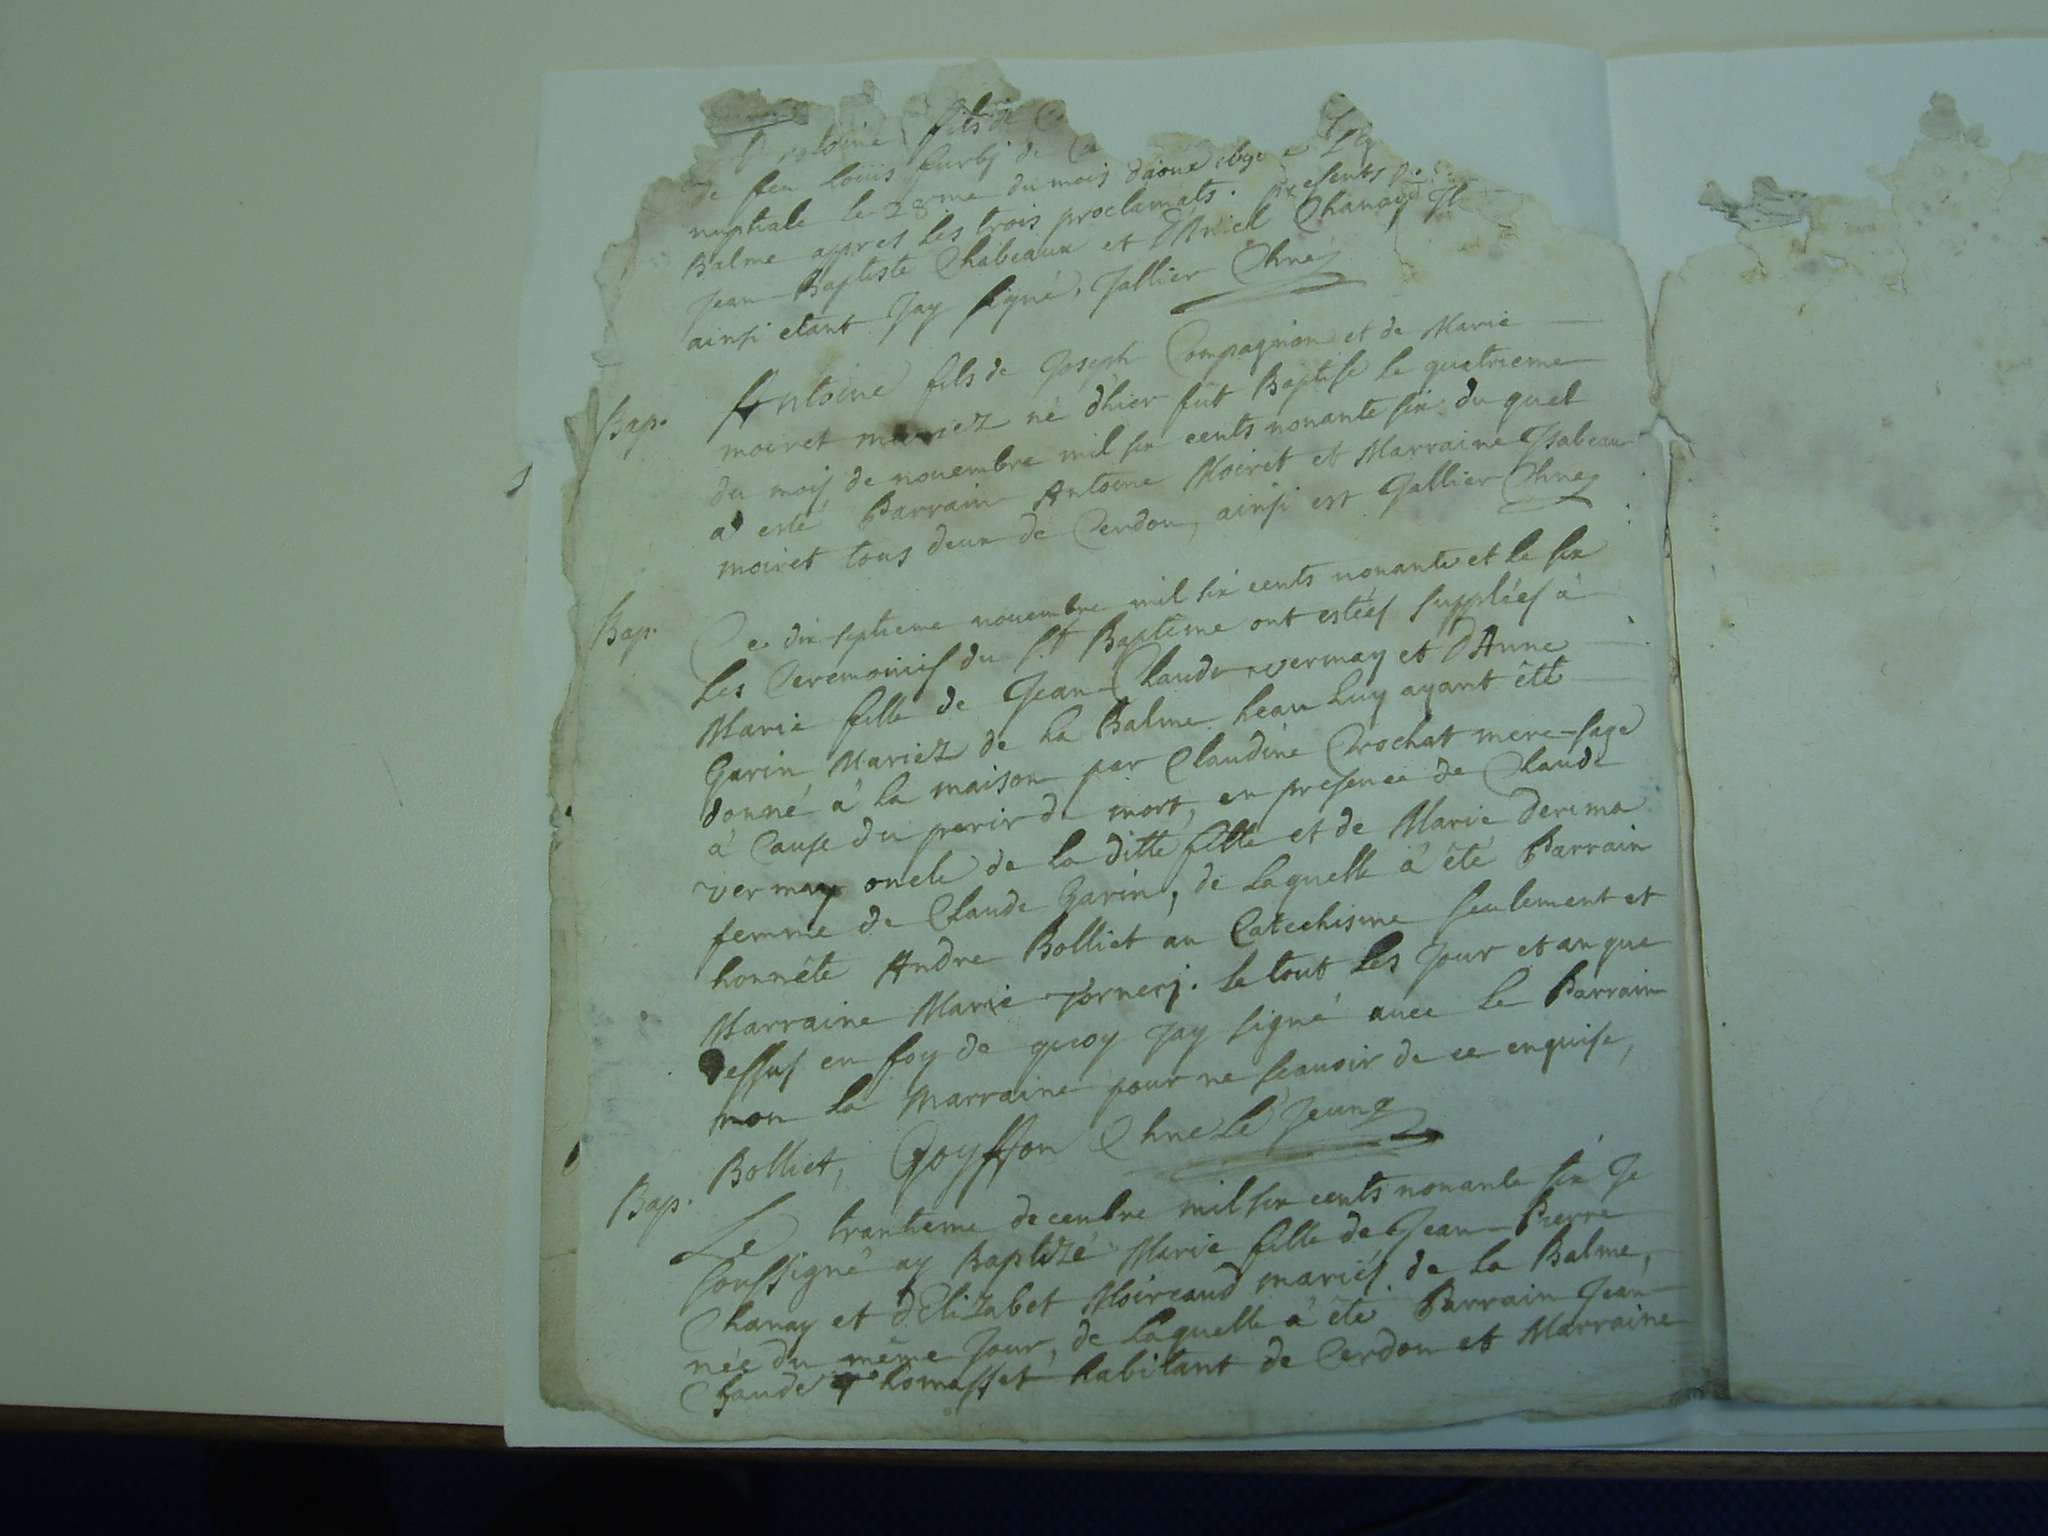 Antoine fils de
de feu Louis Curbj de
nuptiale le 28me du mois d'aoue
Balme appres les trois proclamats. presents
Jean-Baptiste Chabeaux et Chanay
ainsi etant Jay signé, Jallier Chne
Bap. Antoine fils de Joseph Compagnion et de Marie
moiret mariez né d'hier fut Baptisé le quatrieme
du mois de nouembre mil six cents nonante six du quel
a esté Parrain Antoine Moiret et Marraine Isabeau
moiret tous deux de Cerdon, ainsi est Jallier Chne
Bap. Ce dix-septieme nouembre mil six cents nonante et le six
Les Ceremonies du st Baptême ont estées suppléés à
Marie fille de Jean-Claude vermay et d'Anne
Garin Mariez de la Balme leau luy ayant êté
donné à la maison par Claudine Crochat mere-sage
à Cause du perir de mort, en presence de Claude
vermay oncle de la ditte fille et de Marie Derima
femme de Claude Garin, de laquelle à êté Parrain
honnête Andre Bolliet au Catechisme seulement et
Marraine Marie Jornerj. le tout les Jour et an que
dessus en foy de quoy Jay signé auec le Parrain
non la Marraine pour ne scauoir de ce enquise,
Bolliet, Goyffon Chne Le Jeune
Bap. Le trantieme decenbre mil six cents nonante six Je
soussigné ay Baptizé Marie fille de Jean-Pierre
Chanay et d'Elizabet Moireaud mariés de la Balme,
née du même Jour, de laquelle à été Parrain Jean-
Claude Thomasset habitant de Cerdon et Marraine